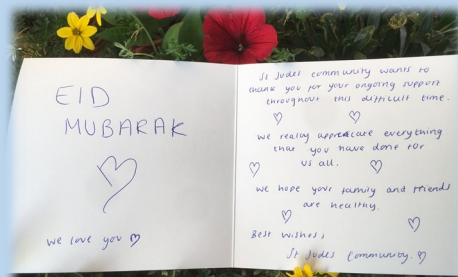 EID
MUBARAK
we love you
St Judes community wants to
thank you for your ongoing support
throughout this difficult time.
we realay appreacate everything
that you have done for
us all.
we hope your family and friends
are healthy.
Best wishes,
St Judes Community.